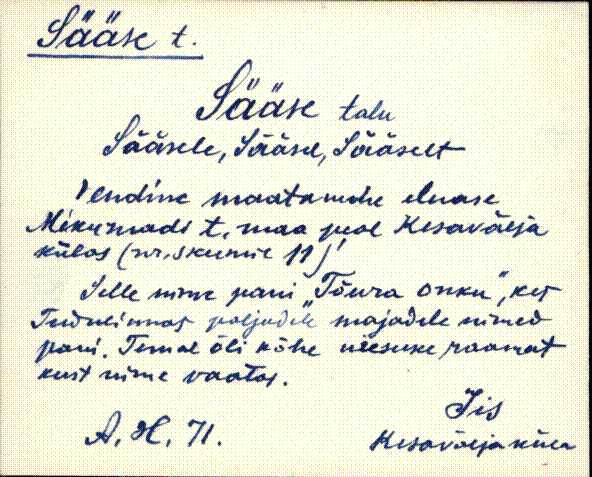 Sääse t.
Sääse talu
Sääsele, Sääsel, Sääselt
Endine maatamehe eluase
Mikumadi t. maa peal Kesavälja
külas (nr. skeemil 11)
Selle nime pani "Tõura onku", kes
Tudulinnas paljudele majadele nimed
pani. Temal oli kõhe niesuke raamat
kust nime vaatas.
A. H. 71.
Iis
Kesavälja küla